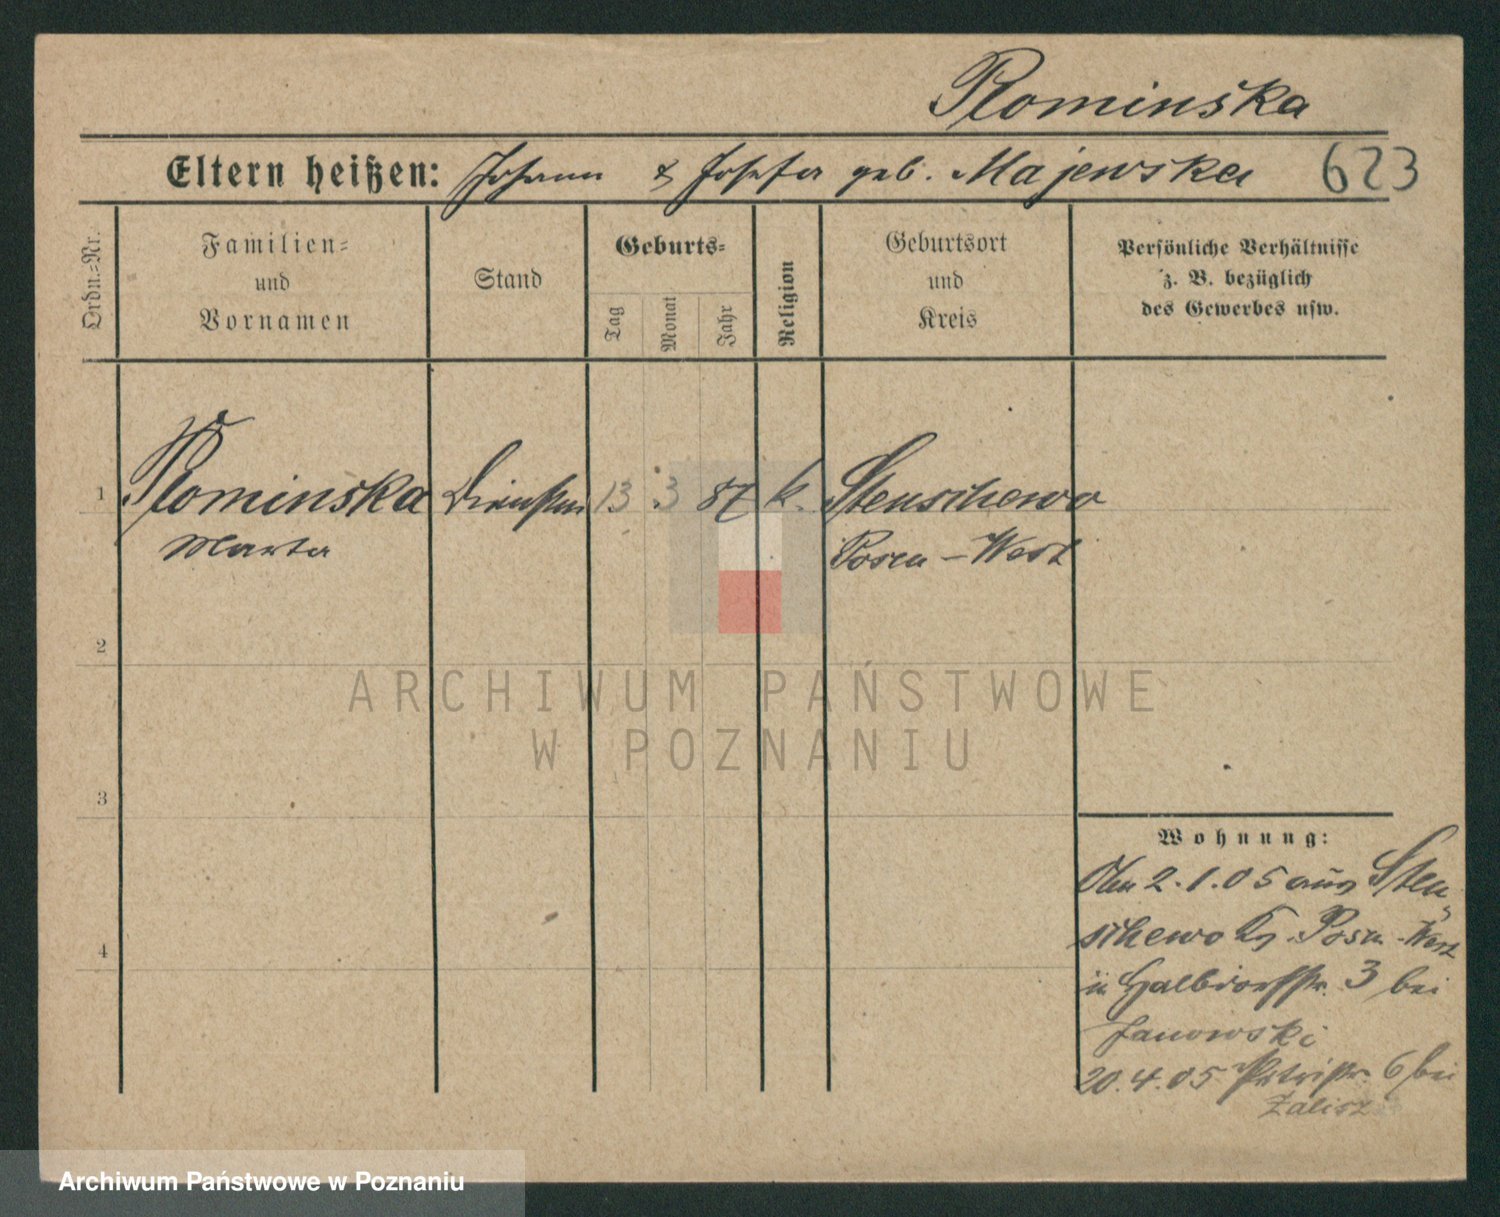 Plominska
Eltern heißen: Johann & Josefa geb. Majewska 623
Ordn.=Nr.
Familien=
und
Vornamen
Stand
Geburts=
Tag
Monat
Jahr
Religion
Geburtsort
und
Kreis
Persönliche Verhältnisse
z. B. bezüglich
des Gewerbes usw.
1 Plominska 13 3 87 k. Stenschewo
Marta Posen-West
2
ARCHIWUM PAŃSTWOWE
W POZNANIU
3
Wohnung:
2.1.05 aus Sten
schewo Posen-West
in Halbdorfstr. 3 bei
Janowski
4
20.4.05 Petristr. 6 bei
Zalisz
Archiwum Państwowe w Poznaniu